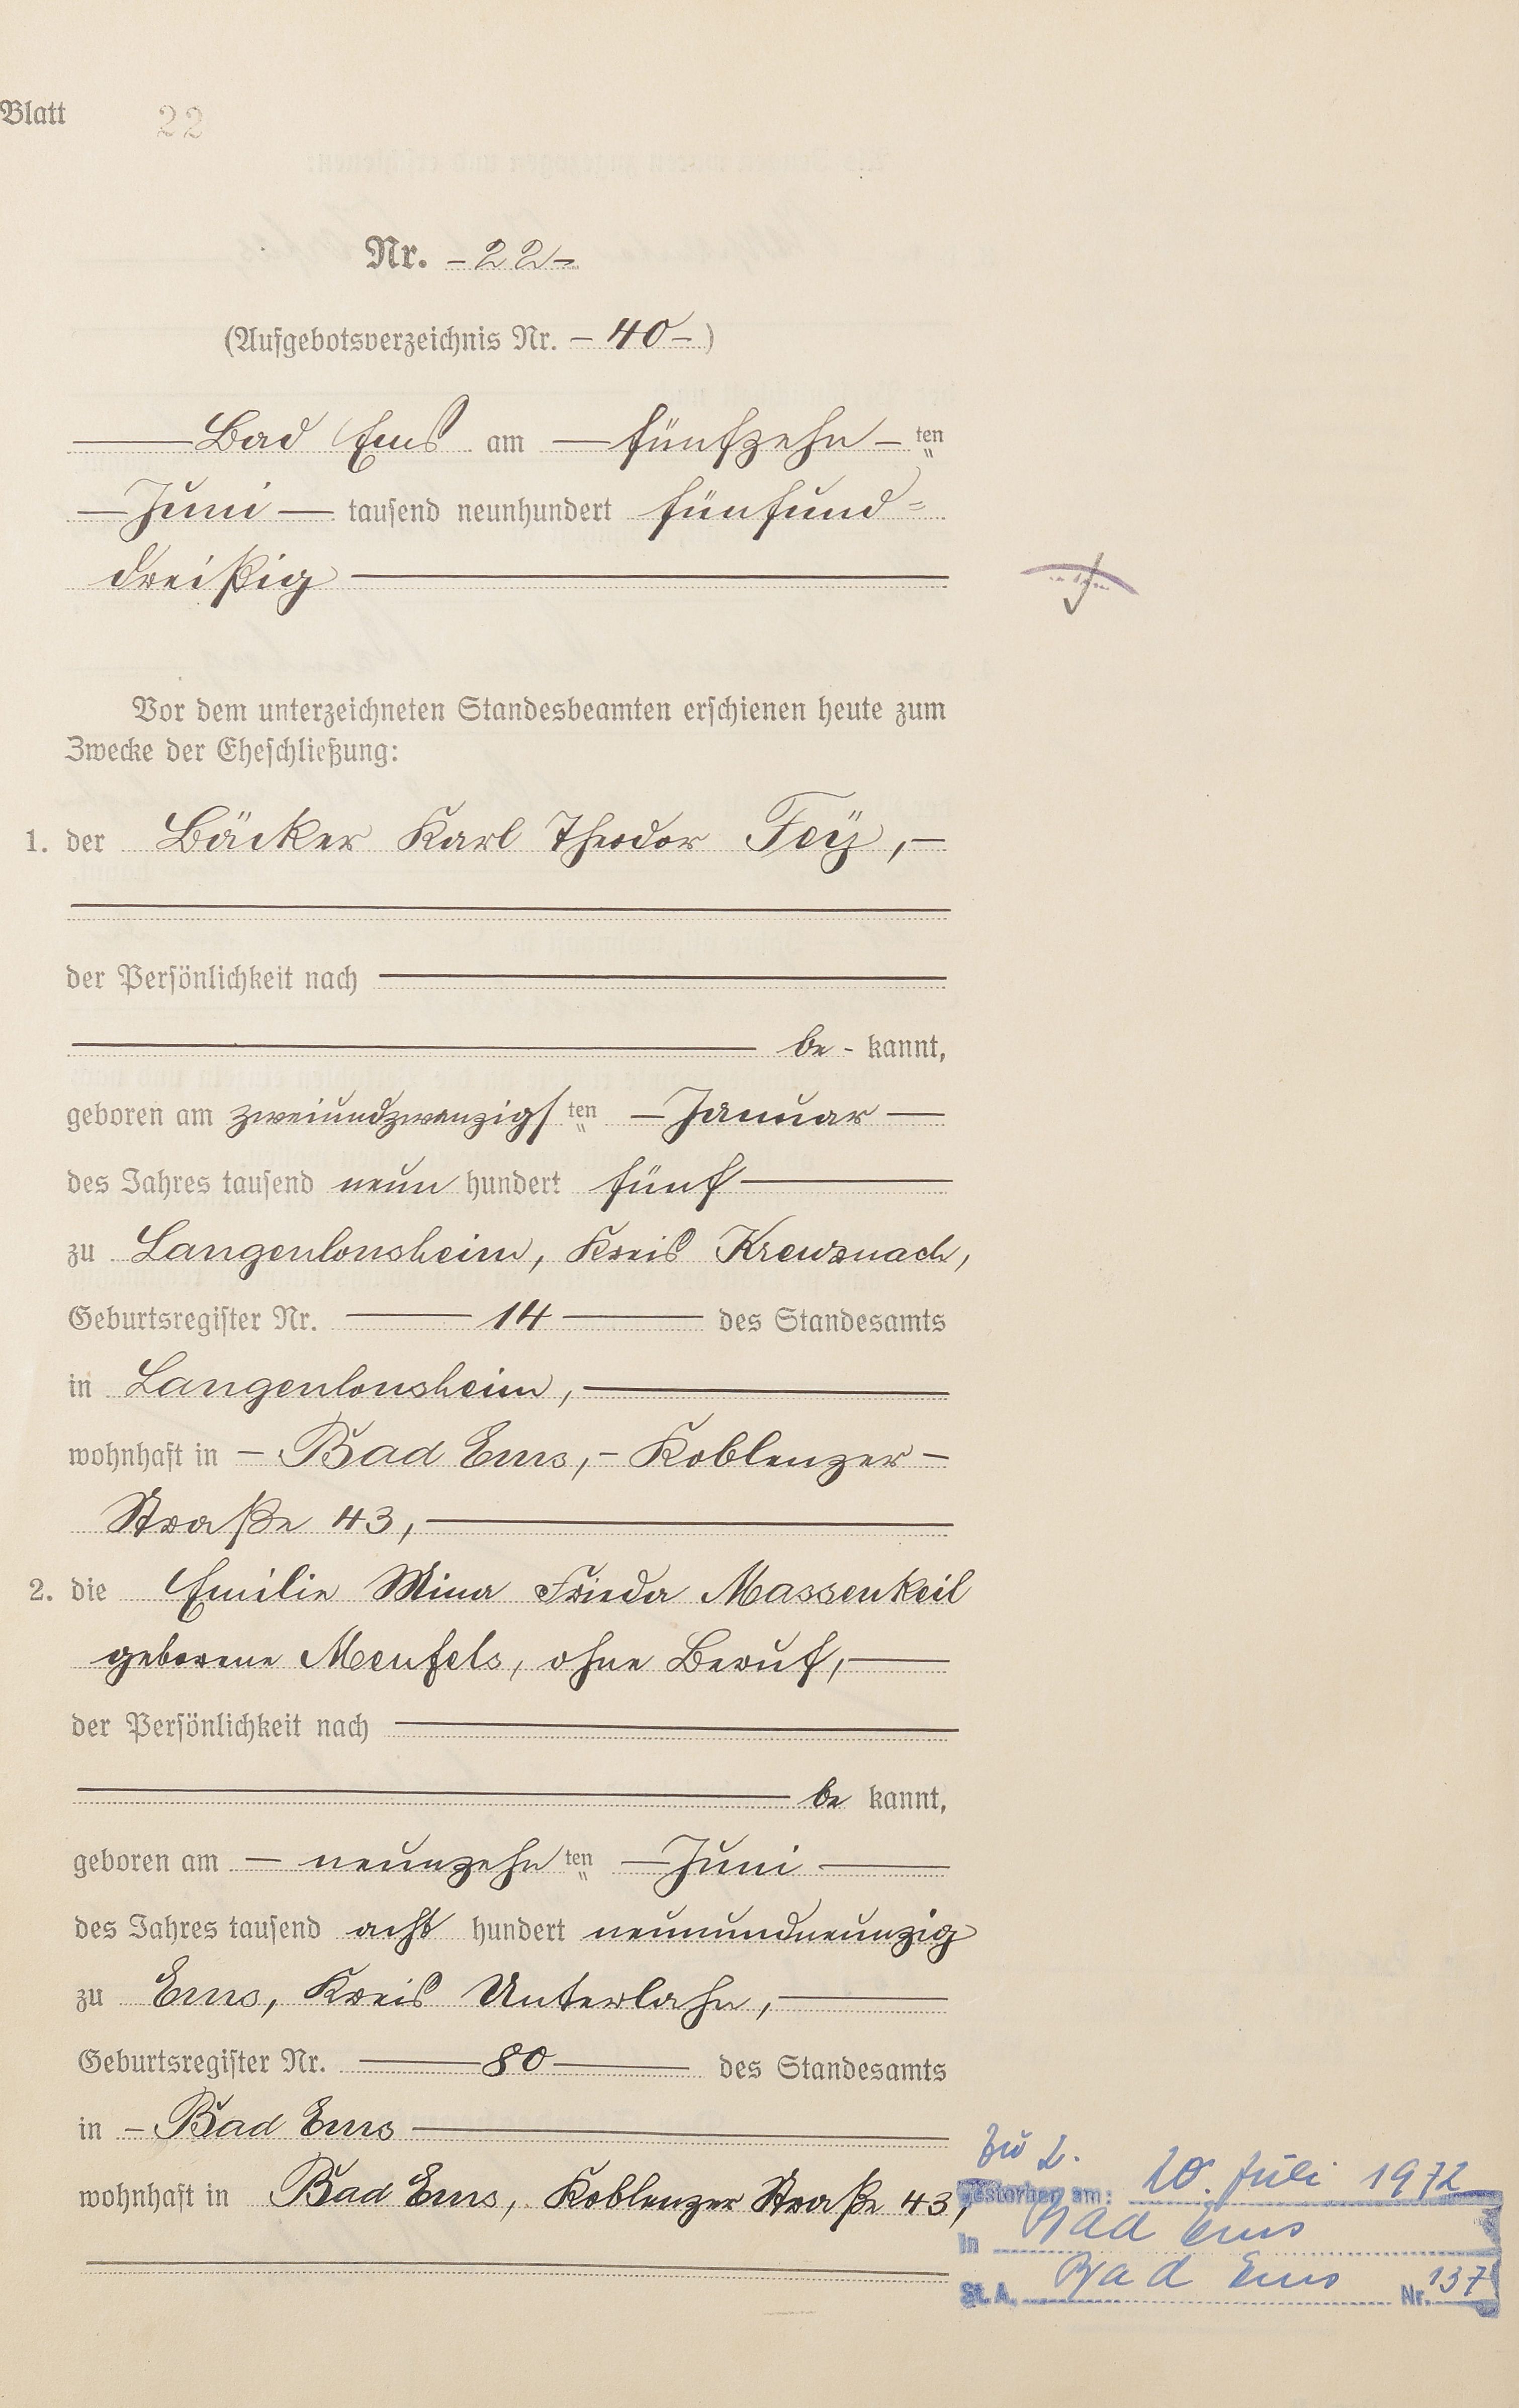 Blatt 22
Nr. – 22 –
(Aufgebotsverzeichnis Nr. – 40 – )
Bad Ems am — fünfzehn – ten
— Juni — tausend neunhundert fünfund=
dreißig
Vor dem unterzeichneten Standesbeamten erschienen heute zum
Zwecke der Eheschließung:
1. der Bäcker Karl Theodor Feÿ, –
der Persönlichkeit nach
be - kannt,
geboren am zweiundzwanzigsten – Januar —
des Jahres tausend neun hundert fünf —
zu Langenlonsheim, Kreis Kreuznach,
Geburtsregister Nr. — 14 — des Standesamts
in Langenlonsheim, —
wohnhaft in – Bad Ems, – Koblenzer –
Straße 43, —
2. die Emilie Mina Frieda Massenkeil
geborene Menfels, ohne Beruf, —
der Persönlichkeit nach
be kannt,
geboren am – neunzehn ten – Juni —
des Jahres tausend acht hundert neunundneunzig
zu Ems, Kreis Unterlahn, —
Geburtsregister Nr. — 80 — des Standesamts
in – Bad Ems —
wohnhaft in Bad Ems, Koblenzer Straße 43,
Zu 2.
Gestorben am: 20. Juli 1972
in Bad Ems
St. A. Bad Ems Nr. 137